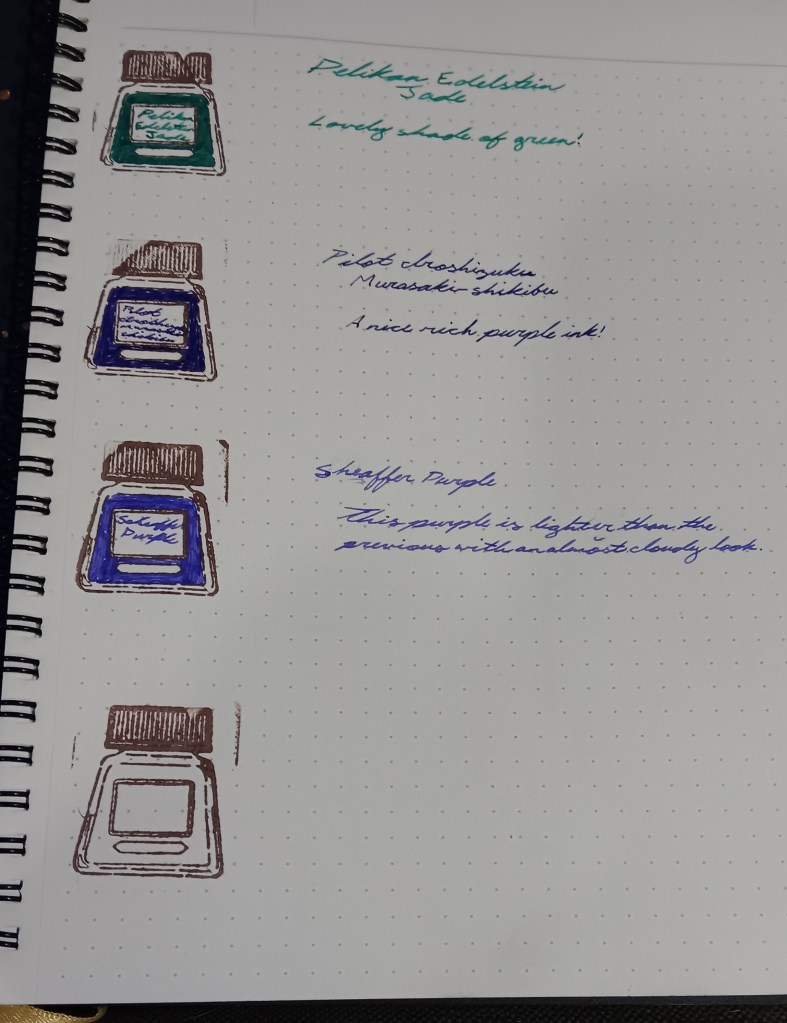 Pelikan Edelstein
Jade
Lovely shade of green!
Pelikan
Edelstein
Jade
Pilot Iroshizuku
Murasaki-shikibu
A nice rich purple ink!
Pilot
Iroshizuku
Murasaki
shikibu
Sheaffer Purple
This purple is lighter than the
previous with an almost cloudy look.
Scheaffer
Purple